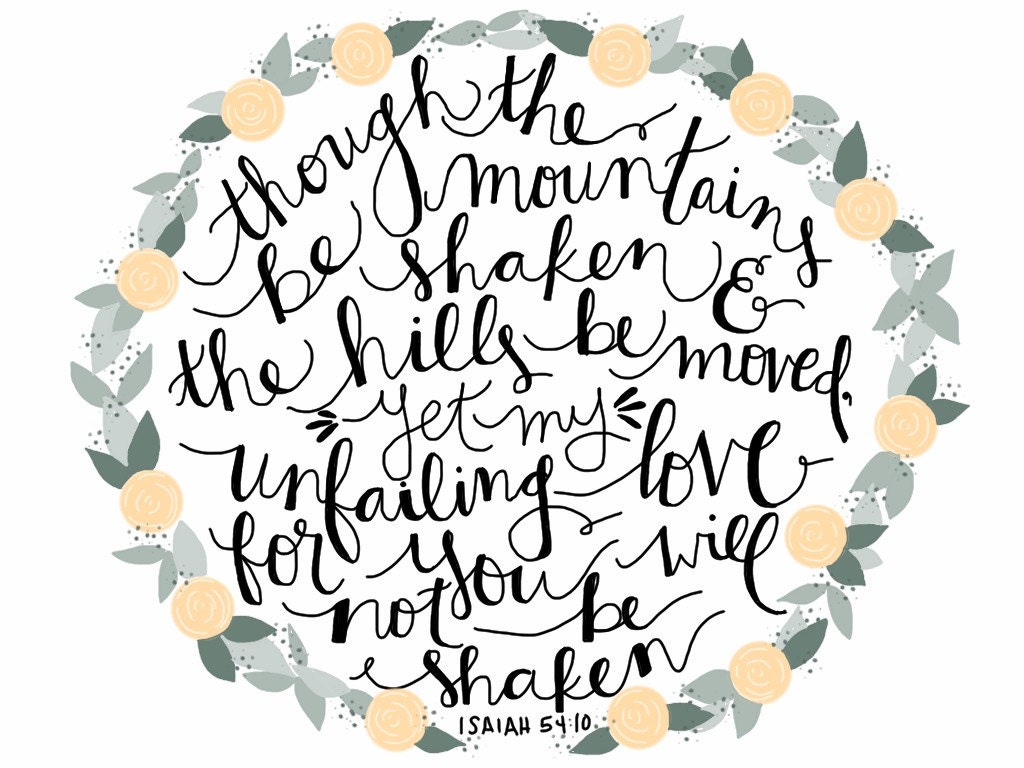 though the
mountains
be shaken &
the hills be moved,
yet my
unfailing love
for you will
not be
shaken
ISAIAH 54:10